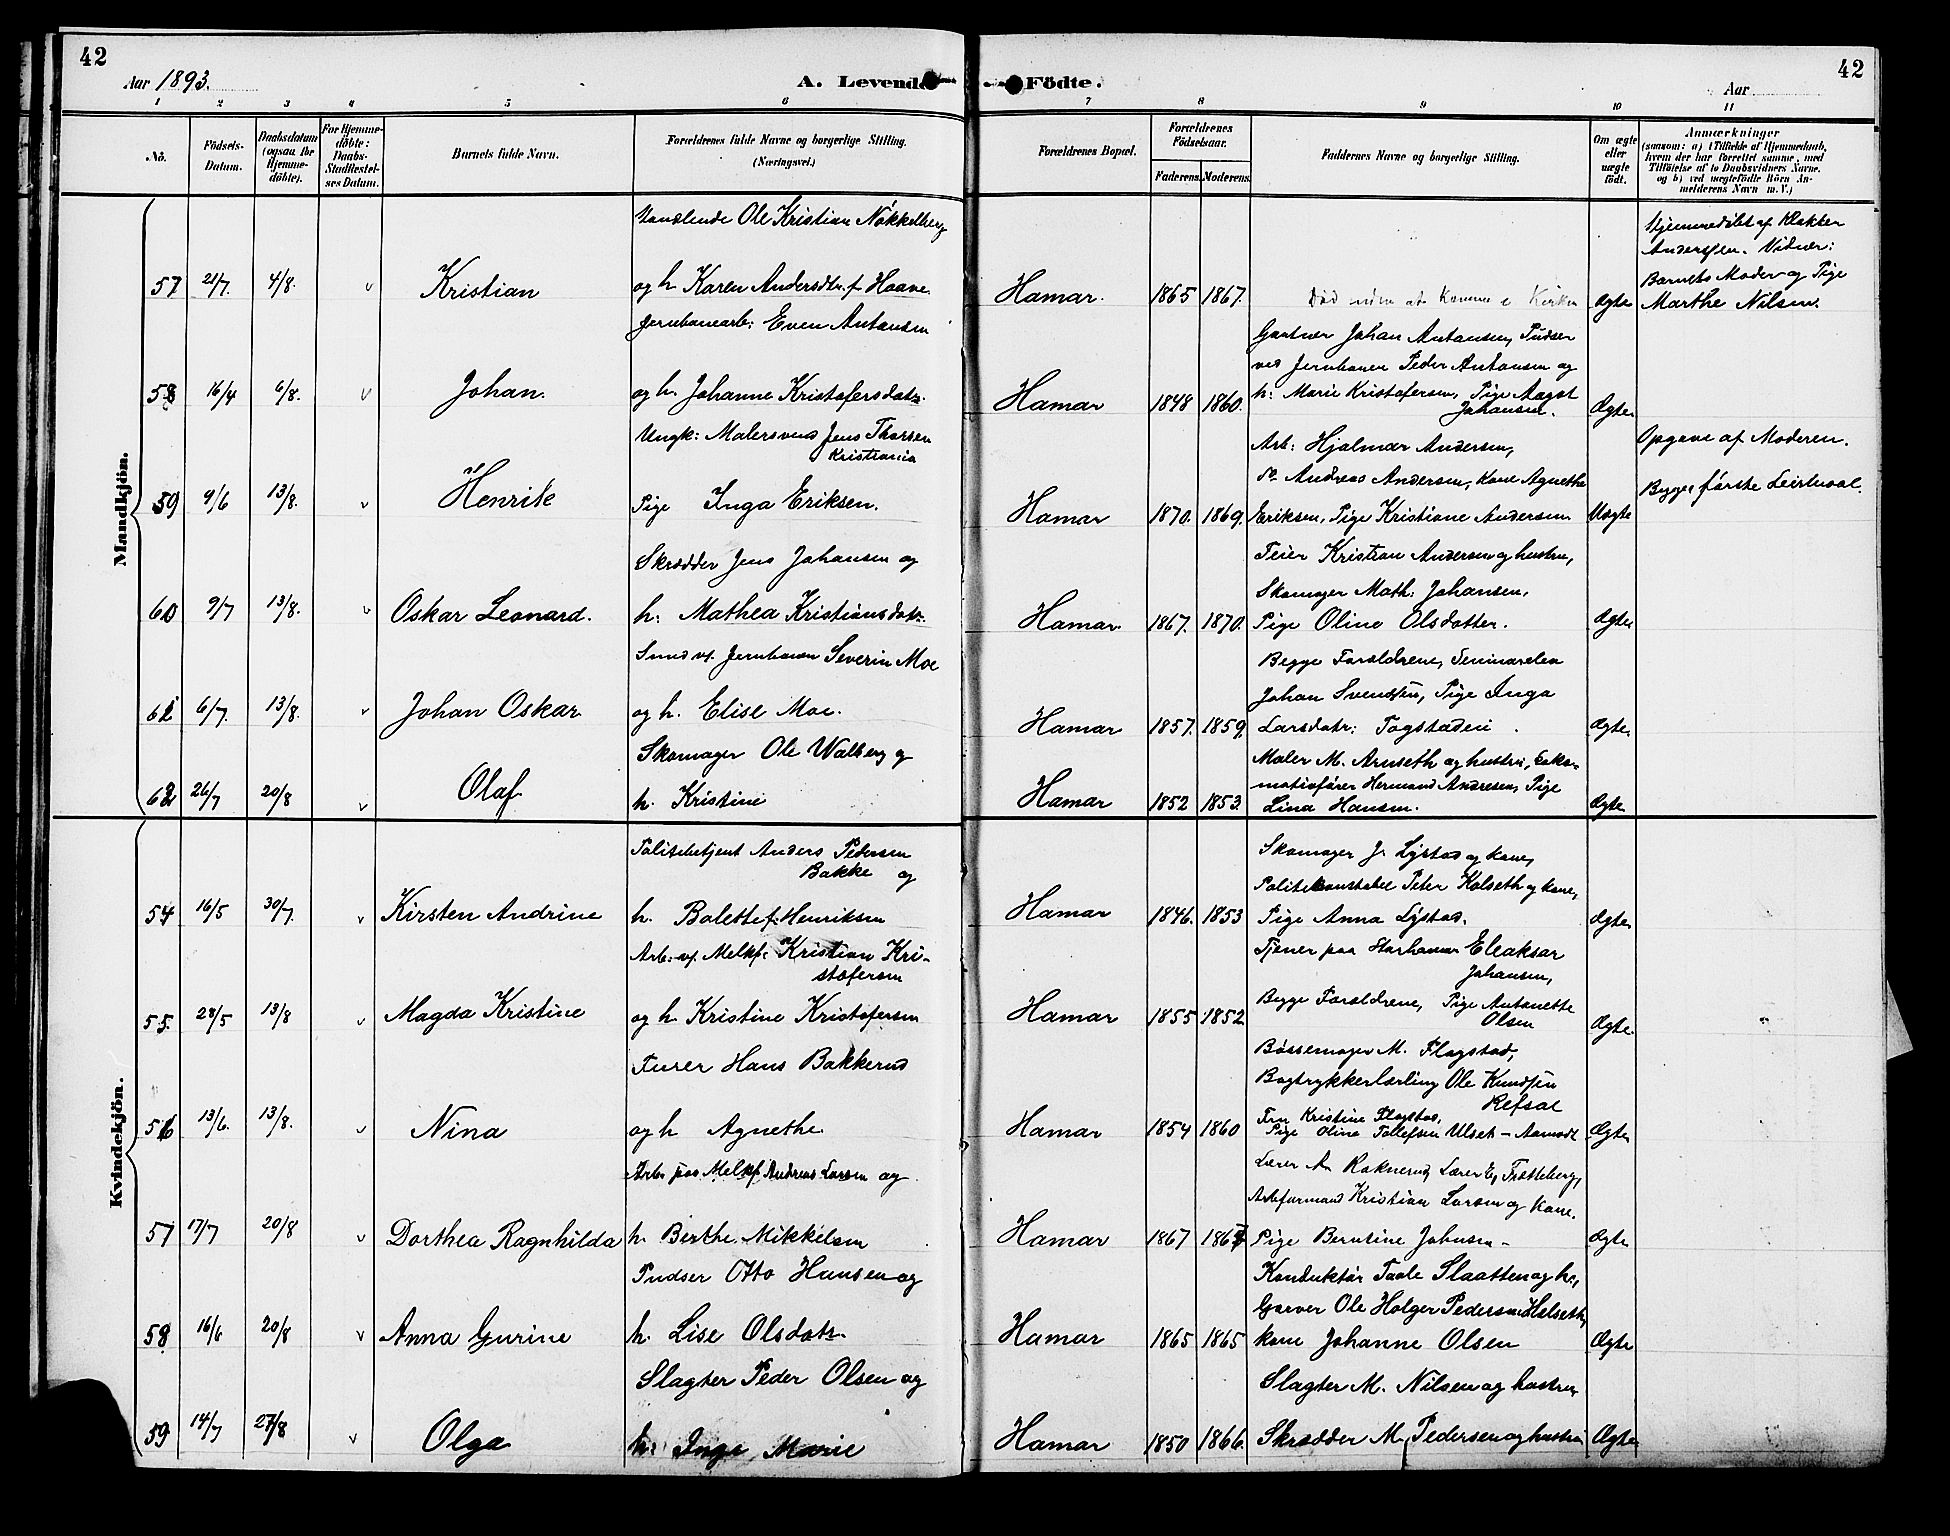 42
Aar 1893.
A. Levende Födte.
Aar
42
1 2 3 4 5 6 7 8 9 10 11
No.
Födsels-Datum.
Daabsdatum (ogsaa for Hjemme-döbte).
For Hjemme-döbte: Daabs-Stadfæstel-ses Datum.
Barnets fulde Navn.
Forældrenes fulde Navne og borgerlige Stilling. (Næringsvei.)
Forældrenes Bopæl.
Forældrenes Födselsaar.
Faderens. Moderens.
Faddernes Navne og borgerlige Stilling.
Om ægte eller uægte födt.
Anmærkninger
(saasom: a) i Tilfælde af Hjemmedaab,
hvem der har forrettet samme, med
Tilföielse af to Daabsvidners Navne.
og b) ved uægtefödte Börn An-
melderens Navn m. V.)
Mandkjön.
Handlende Ole Kristian Nökkelberg
57 21/7. 4/8. v Kristian og h. Karen Andersdtr. f. Haave.
Hamar. 1865 1867. Död uden at komme i Kirken Ægte
Hjemmedöbt af Klokker
Anderssen. Vidner:
Barnets Moder og Pige
Marthe Nilsen.
Jernbanearb: Even Antonsen
58 16/4 6/8. v Johan. og h. Johanne Kristofersdatr.
Hamar 1848 1860.
Gartner Johan Antonsen, Pudser
ved Jernbanen Peder Antonsen og
h: Marie Kristofersen, Pige Aagot
Johansen. Ægte
Ungk: Malersvend Jens Thorsen
Kristiania
59 9/6 13/8. v Henrik Pige Inga Eriksen.
Hamar 1870. 1869.
Arb: Hjalmar Andersen,
Do Andreas Andersen, Kone Agnethe
Eriksen, Pige Kristiane Andersen Uægte
Opgave af Moderen.
Begges første Leiermaal.
Skrædder Jens Johansen og
60 9/7 13/8. v Oskar Leonard. h: Mathea Kristiansdatr.
Hamar. 1867. 1870.
Feier Kristian Andersen og hustru,
Skomager Math: Johansen,
Pige Oline Olsdatter. Ægte
Smed v/. Jernbanen Severin Moe
61 6/7. 13/8. v Johan Oskar og h. Elise Moe.
Hamar 1857. 1859.
Begge Forældrene, Seminarelev
Johan Svendsen, Pige Inga
Larsdatr: Togstadeie. Ægte
Skomager Ole Walberg og
62 26/7 20/8 v Olaf h. Kristine
Hamar 1852 1853.
Maler M. Arneseth og hustru, Loko-
motivfører Hermand Andresen, Pige
Lina Hansen. Ægte
Kvindekjön.
Politibetjent Anders Pedersen
Bakke og
54 16/5 30/7. v Kirsten Andrine h. Bolette f. Henriksen
Hamar 1846. 1853
Skomager J. Lystad og kone,
Politikonstabel Peter Kolseth og kone,
Pige Anna Lystad. Ægte
Arb: v/. Melkf: Kristian Kri-
stofersen
55. 28/5 13/8 v Magda Kristine og h. Kristine Kristofersen
Hamar 1855 1852
Tjener paa Storhamar Eleaksar
Johansen,
Begge Forældrene, Pige Antonette
Olsen Ægte.
Furer Hans Bakkerud
56 13/6. 13/8. v Nina og h Agnethe
Hamar 1854 1860
Bøssemager M. Flagstad,
Bogtrykkerlærling Ole Knudsen
Refsal
Fru Kristine Flagstad,
Pige Olina Tollefsen Ulset - Aamodt Ægte
Arb. paa Melkf. Andreas Larsen og
57 17/7 20/8 v Dorthea Ragnhilda h. Berthe Mikkelsen
Hamar 1867 1867
Lærer A. Roknerud, Lærer E. Trætteberg,
Arbformand Kristian Larsen og kone.
Pige Berntine Johnsen - Ægte
Pudser Otto Hansen og
58 16/6 20/8 v Anna Gurine h. Lise Olsdatr.
Hamar 1865 1865
Konduktør Taale Slaatten og h.,
Garver Ole Holger Pedersen Helseth,
kone Johanne Olsen Ægte
Slagter Peder Olsen og
59 14/7 27/8 v Olga h: Inge Marie
Hamar 1850 1866.
Slagter M. Nilsen og hustru
Skrædder M. Pedersen og hustru Ægte